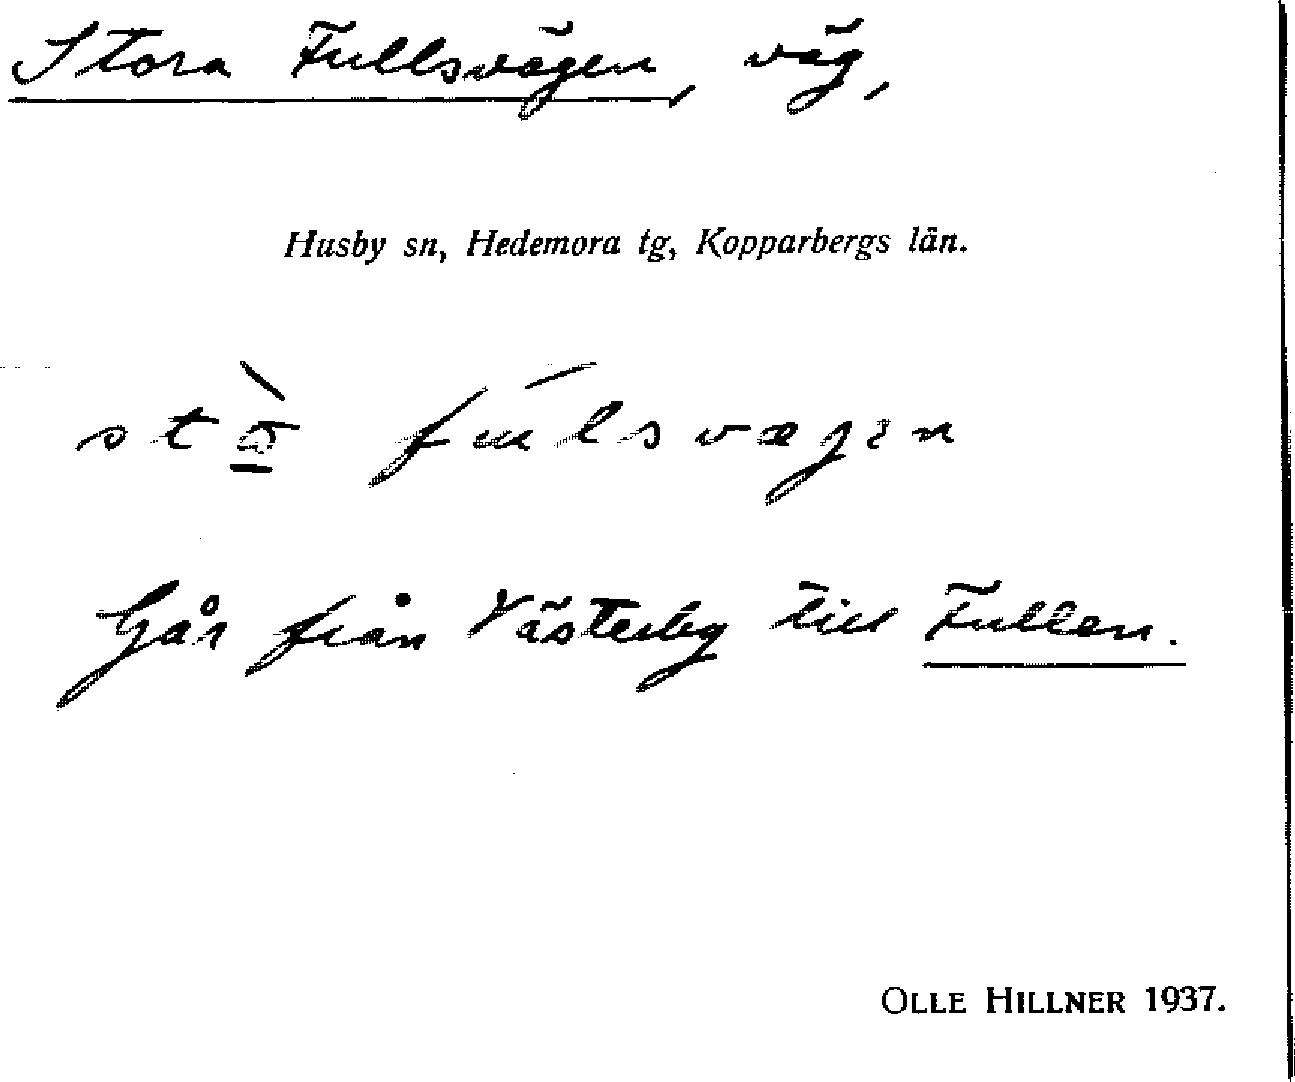 Stora Fullsvägen, väg,
Husby sn, Hedemora tg, Kopparbergs län.
fulsvægen
Går från Västerby till Fullen.
OLLE HILLNER 1937.